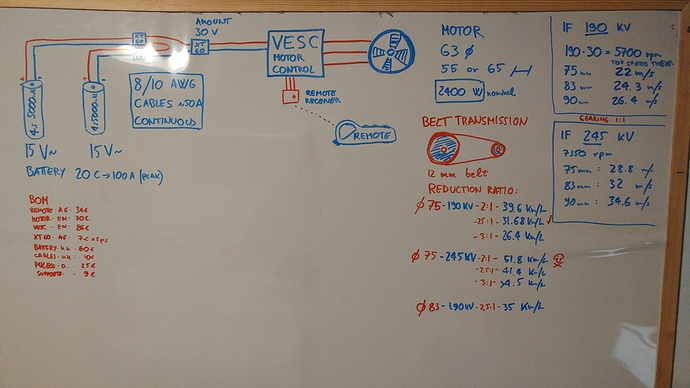 AMOUNT
30 V
XT
60
XT
60
4s 5000mAh
15 V~
15 V~
BATTERY 20C → 100A (peak)
8/10 AWG
CABLES ~50A
CONTINUOUS
VESC
MOTOR
CONTROL
REMOTE
RECEIVER
REMOTE
BOM
REMOTE · AE · 34€
MOTOR · EN · 70€
VESC · EN · 86€
XT60 · AE · 7€ x5 pcs
BATTERY · HK · 60€
CABLES · HK · 10€
25€
9€
MOTOR
63 Ø
55 or 65
2400 W nominal
BELT TRANSMISSION
12 mm belt
REDUCTION RATIO:
Ø 75 - 190KV - 2:1 - 39.6 Km/h
- 2.5:1 - 31.68 Km/h ✓
- 3:1 - 26.4 Km/h
Ø 75 - 245KV - 2:1 - 51.8 Km/h
- 2.5:1 - 41.4 Km/h
- 3:1 - 34.5 Km/h
Ø 83 - 190KV - 2.5:1 - 35 Km/h
IF 190 KV
190 · 30 = 5700 rpm
TOP SPEED THEOR.
75 mm 22 m/s
83 mm 24.3 m/s
90 mm 26.4 m/s
GEARING 1:1
IF 245 KV
7350 rpm
75mm : 28.8 m/s
83mm : 32 m/s
90mm : 34.6 m/s